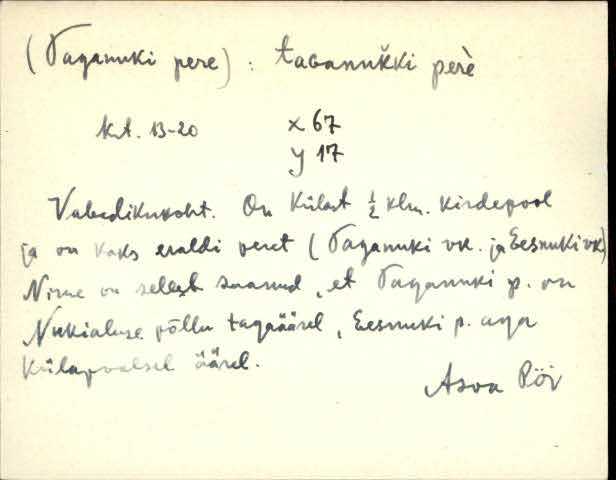 (Taganuki pere) : taGanuk̆ki perè
Kt. B-20 x 67
y 17
Vabadikukoht. On külast ½ klm. kirdepool
ja on kaks eraldi peret (Taganuki vk. ja Eesnuki vk)
Nime on sellest saanud, et Taganuki p. on
Nukialuse põllu tagaäärel, Eesnuki p. aga
külapoolsel äärel.
Asva Pöi